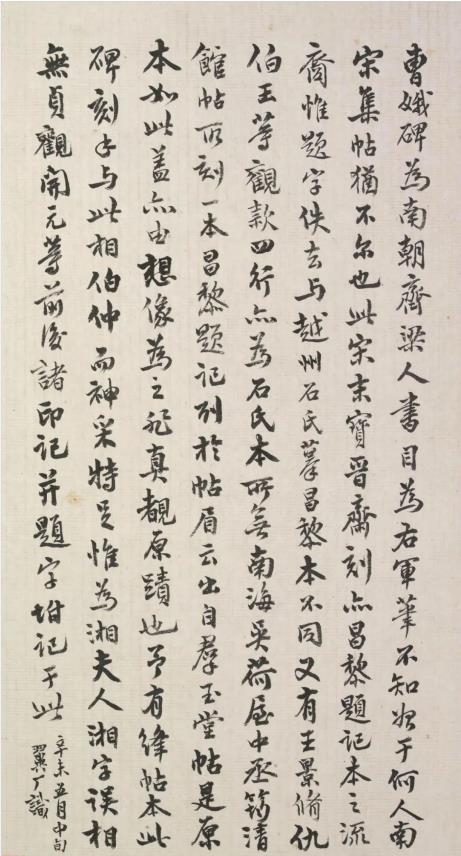 曹娥碑為南朝齊梁人書目為右軍筆不知始于何人南
宋集帖猶不尔也此宋末寶晉齋刻亦昌黎題記本之流
裔惟題字佚去与越州石氏摹昌黎本不同又有王景脩仇
伯玉等觀款四行亦為石氏本所無南海吳荷屋中丞筠清
館帖所刻一本昌黎題記列於帖眉云出自群玉堂帖是原
本如此蓋亦由想像為之非真覩原蹟也予有絳帖本此
碑刻手与此相伯仲而神采特足惟為湘夫人湘字误相
無貞觀開元等前後諸印記并題字坿記于此
辛未五月中旬
翼厂識